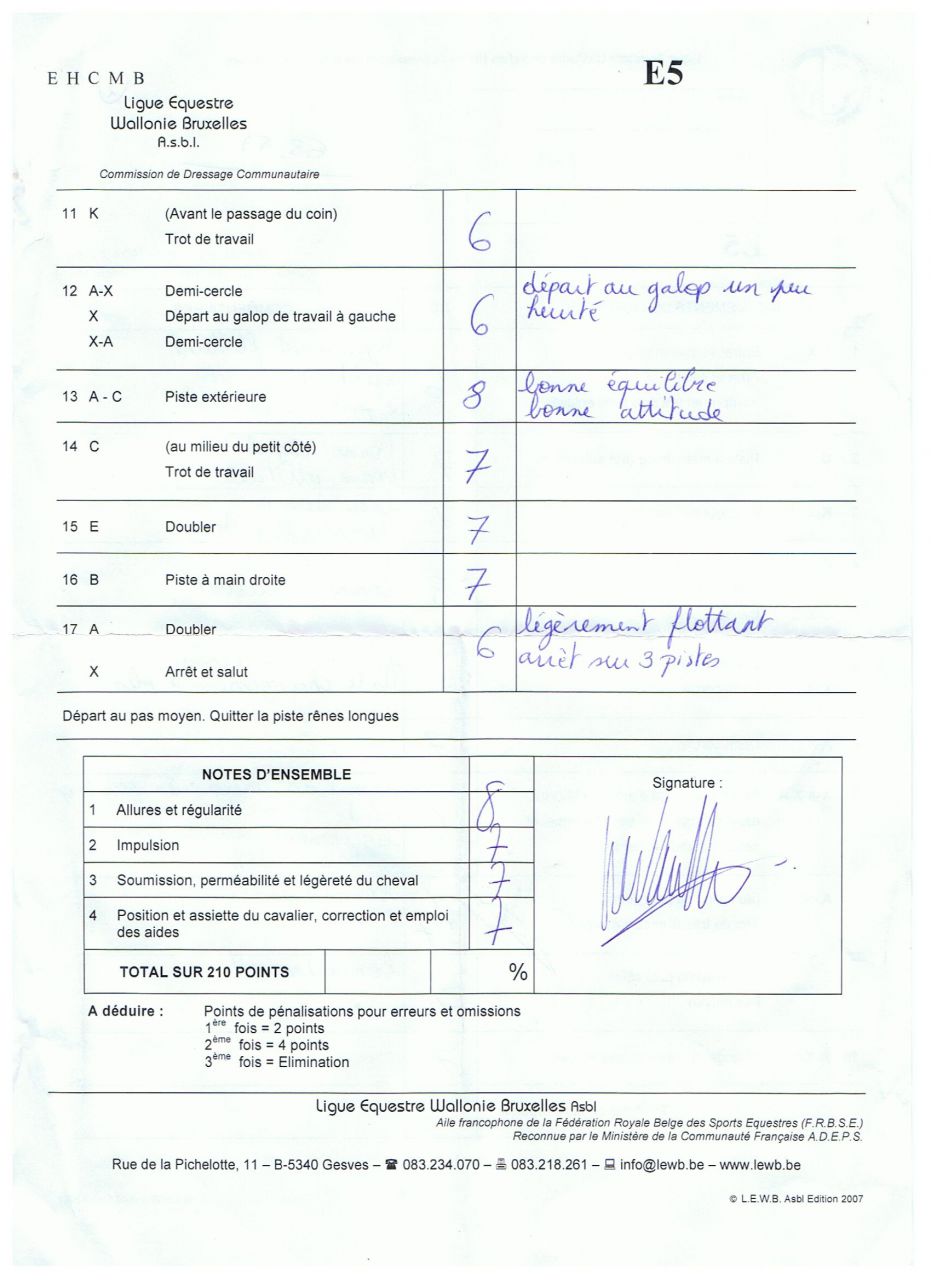 E H C M B
E5
Ligue Equestre
Wallonie Bruxelles
A.s.b.l.
Commission de Dressage Communautaire
11 K (Avant le passage du coin)
Trot de travail
6
12 A-X Demi-cercle
X Départ au galop de travail à gauche
X-A Demi-cercle
6
départ au galop un peu
heurté
13 A - C Piste extérieure
8
bonne équilibre
bonne attitude
14 C (au milieu du petit côté)
Trot de travail
7
15 E Doubler
7
16 B Piste à main droite
7
17 A Doubler
X Arrêt et salut
6
légèrement flottant
arrêt sur 3 pistes
Départ au pas moyen. Quitter la piste rênes longues
NOTES D'ENSEMBLE
1 Allures et régularité 8
2 Impulsion 7
3 Soumission, perméabilité et légèreté du cheval 7
4 Position et assiette du cavalier, correction et emploi
des aides 7
TOTAL SUR 210 POINTS %
Signature :
A déduire : Points de pénalisations pour erreurs et omissions
1ère fois = 2 points
2ème fois = 4 points
3ème fois = Elimination
Ligue Equestre Wallonie Bruxelles Asbl
Aile francophone de la Fédération Royale Belge des Sports Equestres (F.R.B.S.E.)
Reconnue par le Ministère de la Communauté Française A.D.E.P.S.
Rue de la Pichelotte, 11 – B-5340 Gesves – ☎ 083.234.070 – 083.218.261 – info@lewb.be – www.lewb.be
© L.E.W.B. Asbl Edition 2007